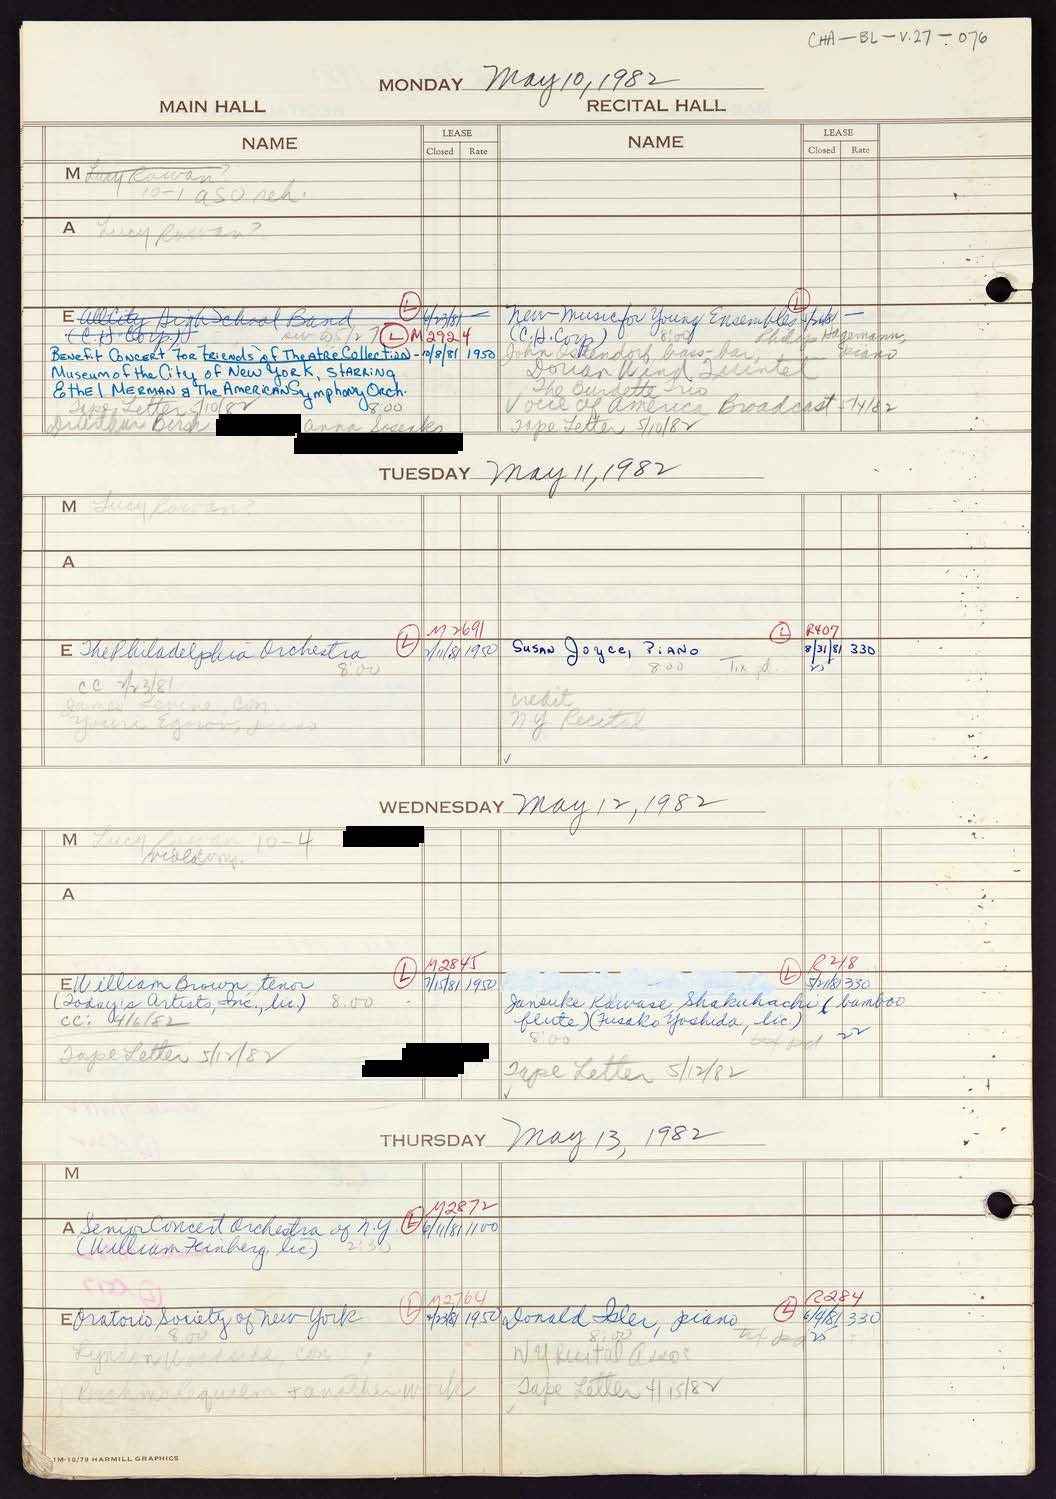 CHA-BL-V.27-076
MONDAY May 10, 1982
MAIN HALL RECITAL HALL
NAME LEASE Closed Rate NAME LEASE Closed Rate
M Lucy Rowan?
10-1 ASO reh.
A Lucy Rowan?
E All City High School Band
(C.H. Corp.)
L
L M2924
Benefit Concert For Friends of Theatre Collection - 10/8/81 1950
Museum of the City of New York, Starring
Ethel Merman & The American Symphony Orch.
Tape Letter 5/10/82 8:00
Anna Sosenko
L
New Music for Young Ensembles
(C.H. Corp) 8:00 Philip Hagemann, piano
John Ostendorf, bass-bar,
Dorian Wind Quintet
The Burdette Trio
Voice of America Broadcast
Tape Letter 5/10/82
TUESDAY May 11, 1982
M Lucy Rowan?
A
M2691
E The Philadelphia Orchestra L 2/11/81 1950
8:00
cc 2/23/81
James Levine, con.
Youri Egorov, piano
L R407
Susan Joyce, Piano 8/31/81 330
8:00
credit
NY Recital
WEDNESDAY May 12, 1982
M Lucy Rowan 10-4
A
M2845
E William Brown, tenor L 7/15/81 1950
(Today's Artists, Inc., lic.) 8:00
cc: 4/6/82
Tape Letter 5/12/82
L R218
5/21/81 330
Janouke Kawase, Shakuhachi (bamboo
flute) (Fusako Yoshida, lic.)
8:00
Tape Letter 5/12/82
THURSDAY May 13, 1982
M
M2872
A Senior Concert Orchestra of N.Y. L 6/11/81 1100
(William Feinberg, lic) 2:30
M2764
E Oratorio Society of New York L 4/23/81 1950
8:00
Lyndon Woodside con.
Brahms Requiem + another work
R284
Donald Isler, piano L 6/9/81 330
8:00
NY Recital Assoc
Tape Letter 4/15/82
1M-10/79 HARMILL GRAPHICS